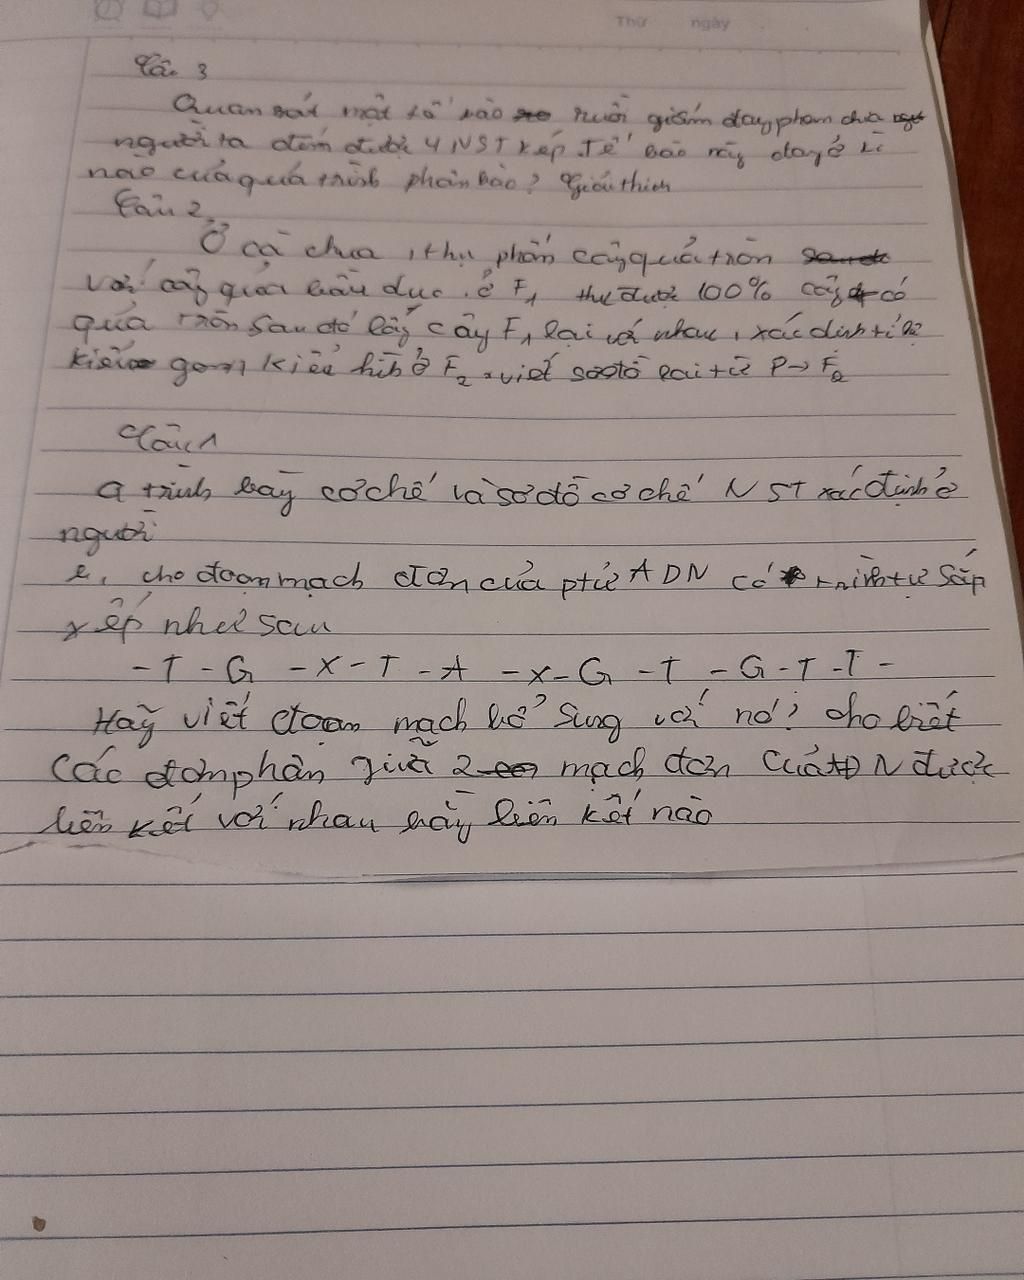 Thứ ngày
Câu 3
Quan sát một tế bào ruồi giấm đang phân chia
người ta đếm được 4 NST kép. Tế bào này đang ở kì
nào của quá trình phân bào? Giải thích
Câu 2
Ở cà chua, thụ phấn cây quả tròn
với cây quả bầu dục. ở F1 thu được 100% cây có
quả tròn sau đó lấy cây F1 lai với nhau, xác định tỉ lệ
kiểu gen kiểu hình ở F2. viết sơ đồ lai từ P → F2
Câu 1
a trình bày cơ chế và sơ đồ cơ chế NST xác định ở
người
b, cho đoạn mạch đơn của ptử ADN có trình tự sắp
xếp như sau
- T - G - X - T - A - X - G - T - G - T - T -
Hãy viết đoạn mạch bổ sung với nó? cho biết
các đơn phân giữa 2 mạch đơn của ADN được
liên kết với nhau bằng liên kết nào